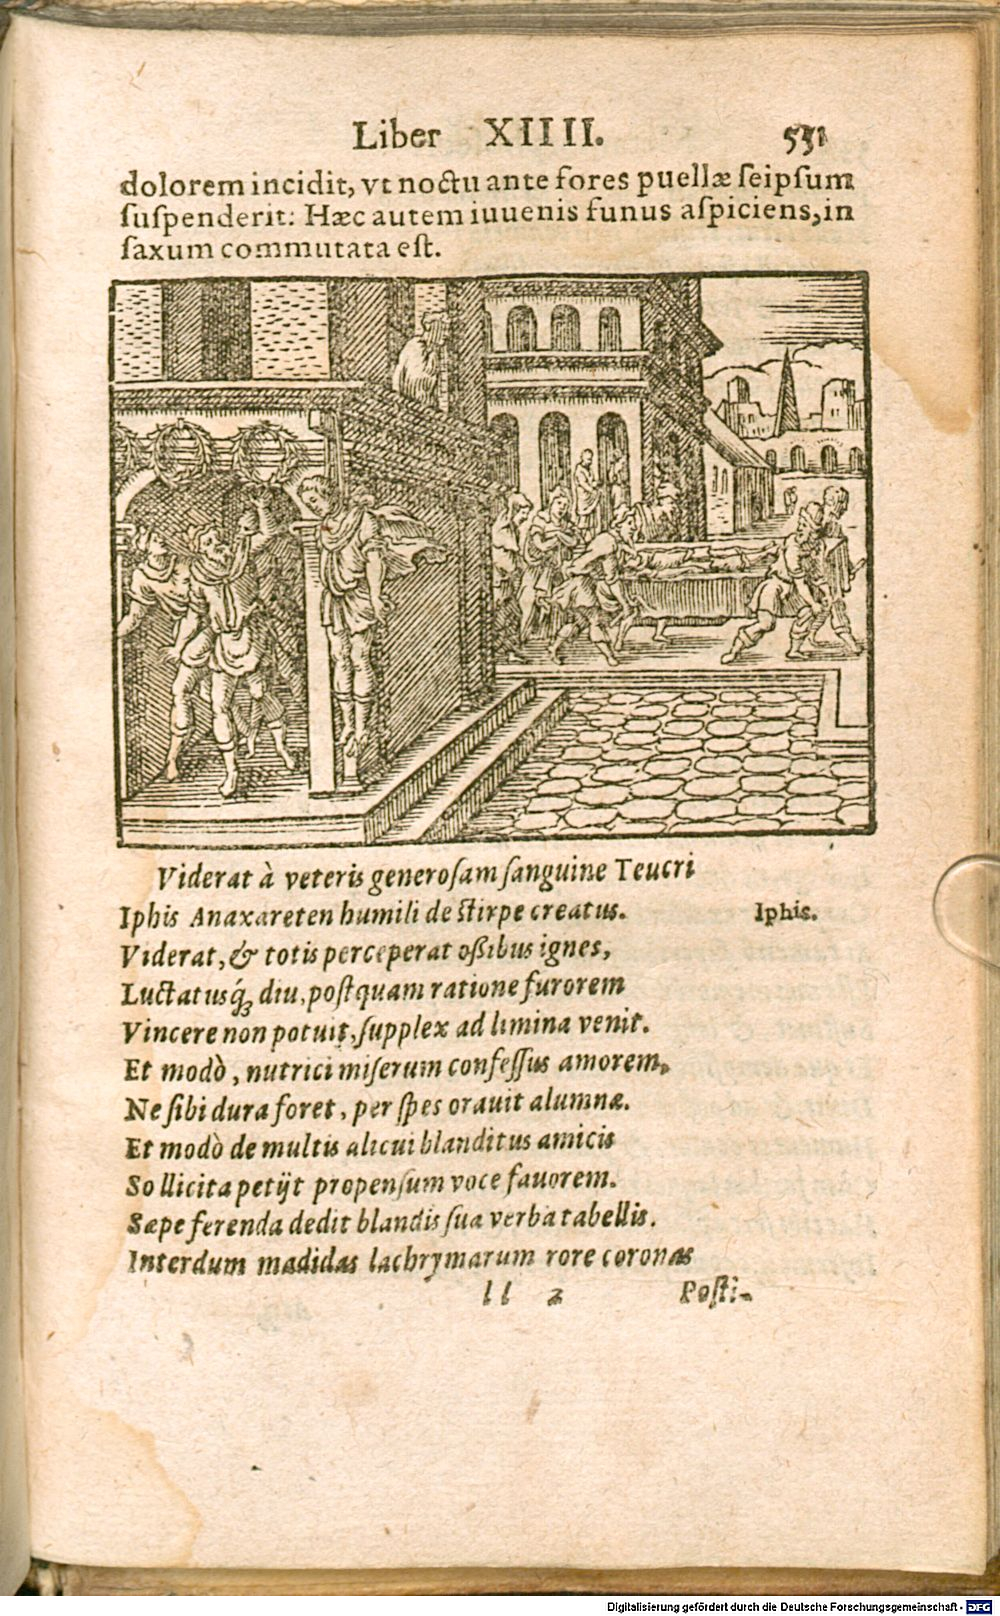 Liber XIIII. 531
dolorem incidit, vt noctu ante fores puellæ seipsum
suspenderit: Hæc autem iuuenis funus aspiciens, in
saxum commutata est.
Viderat à veteris generosam sanguine Teucri
Iphis Anaxareten humili de stirpe creatus. Iphis.
Viderat, & totis perceperat oßibus ignes,
Luctatusq́; diu, postquam ratione furorem
Vincere non potuit, supplex ad limina venit.
Et modò, nutrici miserum confessus amorem,
Ne sibi dura foret, per spes orauit alumnæ.
Et modò de multis alicui blanditus amicis
Sollicita petijt propensum voce fauorem.
Sæpe ferenda dedit blandis sua verba tabellis.
Interdum madidas lachrymarum rore coronas
ll 2 Posti-
Digitalisierung gefördert durch die Deutsche Forschungsgemeinschaft - DFG